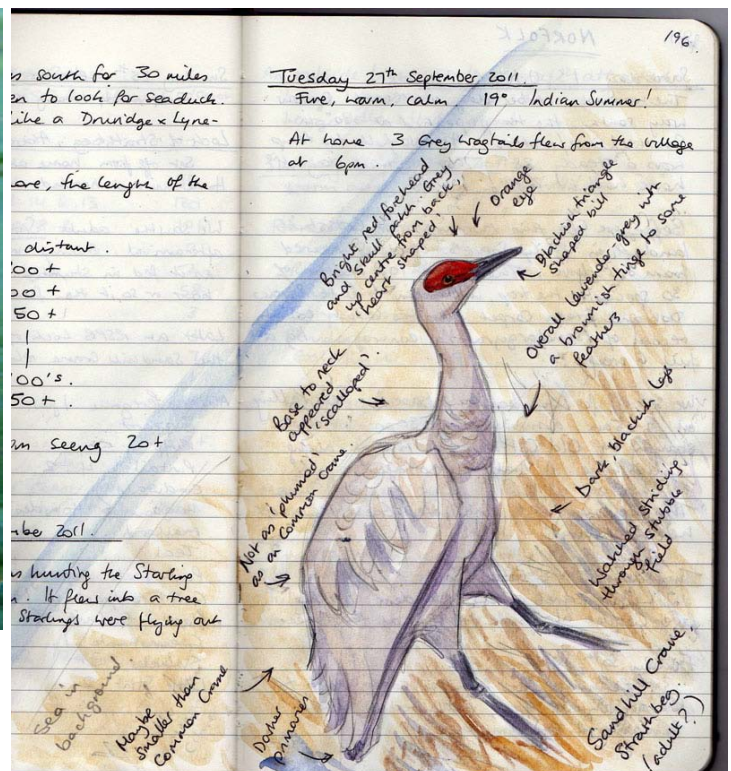 s south for 30 miles
en to look for seaduck.
like a Druridge x Lyne-
ore, the length of the
distant.
00+
00+
50+
1
1
00's.
50+.
am seeing 20+
mber 2011.
s hunting the Starling
. It flew into a tree
Starlings were flying out
Sea in
background.
NORFOLK
196
Tuesday 27th September 2011.
Fine, warm, calm. 19° Indian Summer!
At home 3 Grey Wagtails flew from the village
at 6pm.
Bright red forehead
and skull patch. Grey
up centre from back,
'heart shaped'
Orange
eye
Blackish triangle
shaped bill
Overall lavender-grey with
a brownish tinge to some
feathers
Base to neck
appeared
'scalloped'.
Not as 'plumed'
as an Common Crane.
Dark, blackish legs
Watched striding
through stubble
field
Maybe
smaller than
Common Crane
Darker
primaries
Sandhill Crane.
Strathbeg.
(adult?)